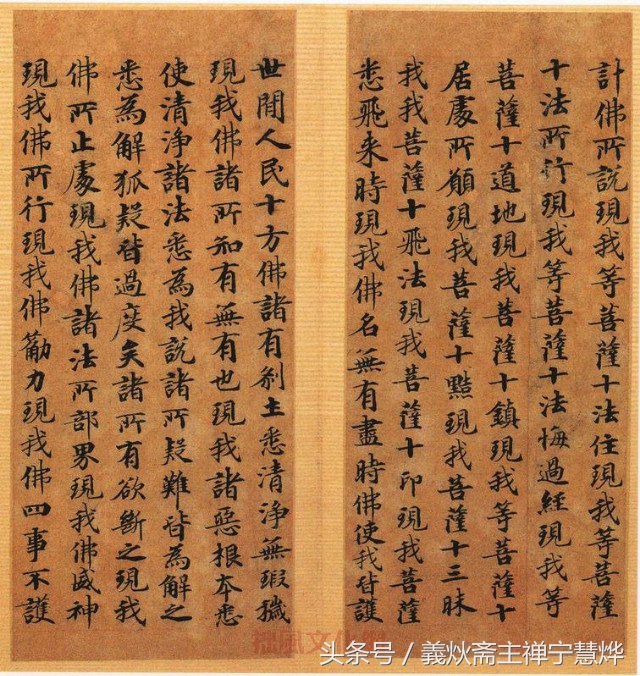 計佛所說現我等菩薩十法住現我等菩薩
十法所行現我等菩薩十法悔過經現我等
菩薩十道地現我菩薩十鎮現我等菩薩十
居處所願現我菩薩十黠現我菩薩十三昧
我我菩薩十飛法現我菩薩十印現我菩薩
悉飛来時現我佛名無有盡時佛使我皆護
世間人民十方佛諸有剎土悉清淨無瑕穢
現我佛諸所知有無有也現我諸惡根本悉
使清淨諸法悉為我說諸所疑難皆為解之
悉為解狐疑皆過度矣諸所有欲斷之現我
佛所止處現我佛諸法所部界現我佛威神
現我佛所行現我佛勸力現我佛四事不護
头条号 / 義炏斋主禅宁慧烨